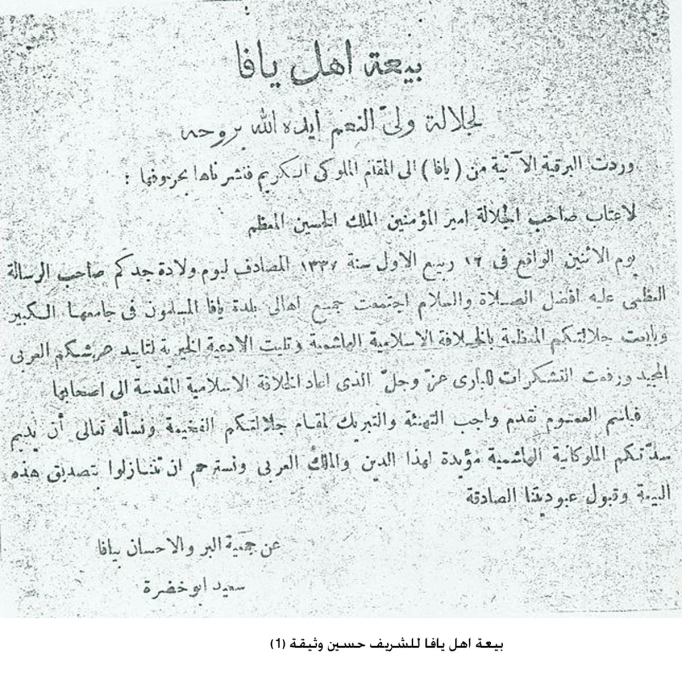 بيعة اهل يافا
لجلالة وليّ النعم ايده الله بروحه
وردت البرقية الآتية من (يافا) الى المقام الملوكى الكريم فنشرناها بحروفها :
لاعتاب صاحب الجلالة امير المؤمنين الملك الحسين المعظم
يوم الاثنين الواقع فى ١٢ ربيع الاول سنة ١٣٣٧ المصادف ليوم ولادة جدكم صاحب الرسالة
العظمى عليه افضل الصلاة والسلام اجتمعت جميع اهالى بلدة يافا المسلمون فى جامعها الكبير
وبايعت جلالتكم المعظمة بالخلافة الاسلامية الهاشمية وتليت الادعية الخيرية لتأييد عرشكم العربى
المجيد ورفعت التشكرات للبارى عزّ وجلّ الذى اعاد الخلافة الاسلامية المقدسة الى اصحابها
فباسم العموم نقدم واجب التهنئة والتبريك لمقام جلالتكم الفخيمة ونسأله تعالى أن يديم
سدّتكم الملوكانية الهاشمية مؤيدة لهذا الدين والملك العربى ونسترحم ان تتنازلوا بتصديق هذه
البيعة وقبول عبوديتنا الصادقة
عن جمعية البر والاحسان بيافا
سعيد ابو خضرة
بيعة اهل يافا للشريف حسين وثيقة (1)